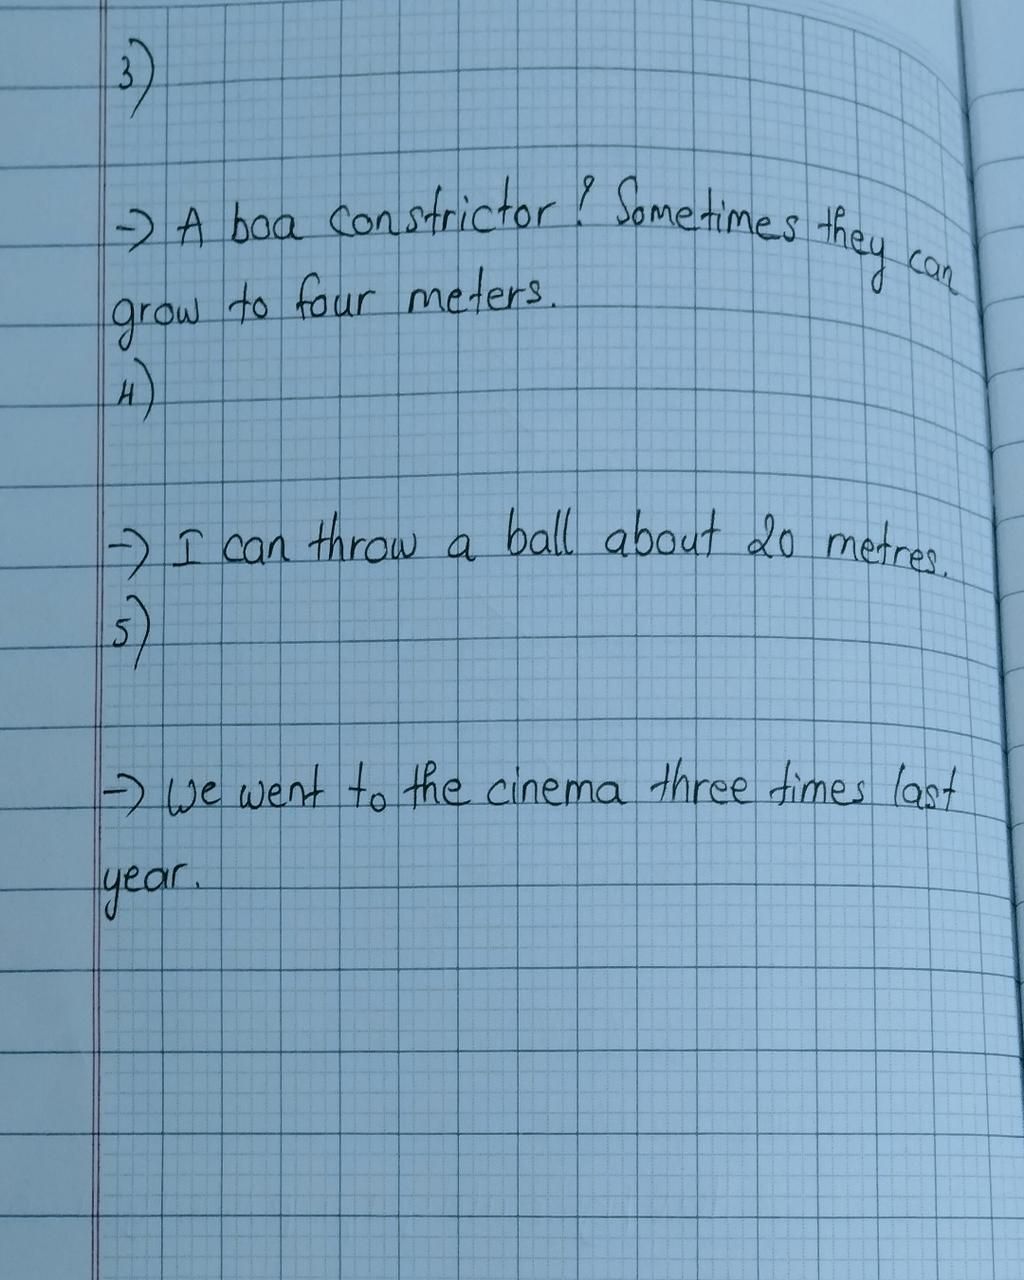 3)
→ A boa constrictor? Sometimes they can
grow to four meters.
4)
→ I can throw a ball about 20 metres.
5)
→ We went to the cinema three times last
year.